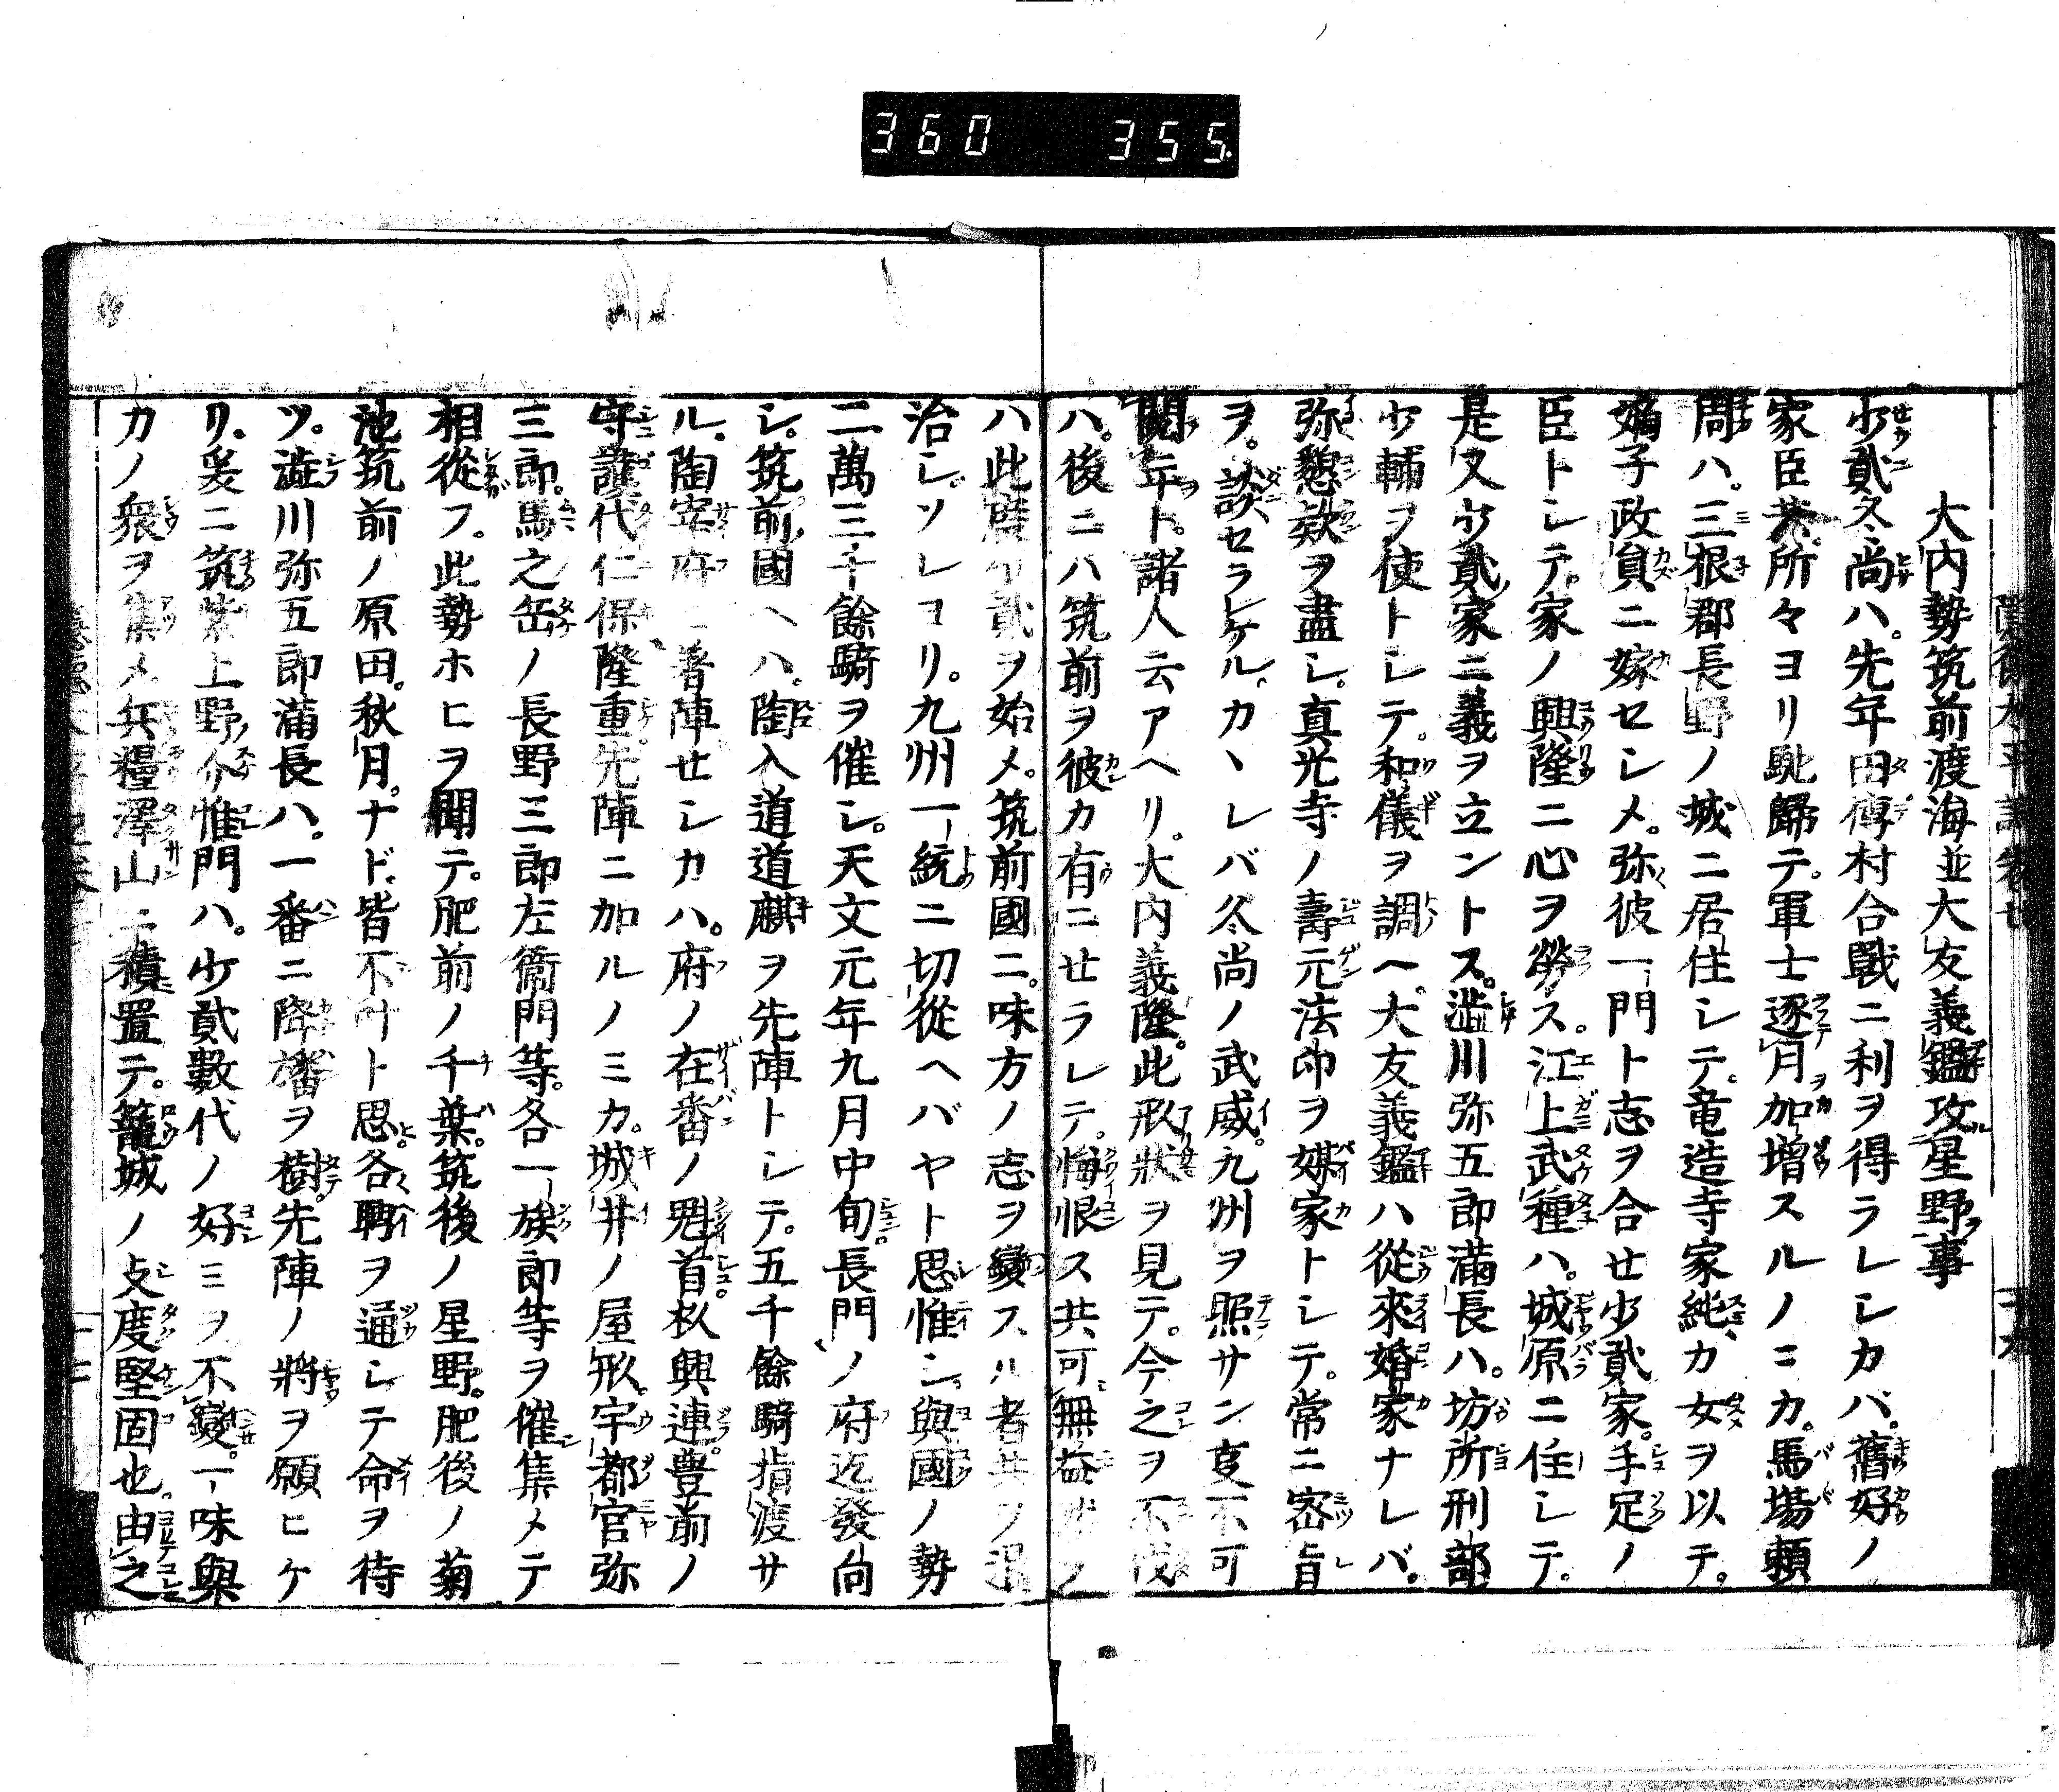 360 355
大内勢筑前渡海並大友義鑑攻星野事
少貳冬尚ハ。先年田傳村合戰ニ利ヲ得ラレシカバ。舊好ノ
家臣共。所々ヨリ馳歸テ。軍士逐月加増スルノミカ。馬場頼
周ハ。三根郡長野ノ城ニ居住シテ。竜造寺家純カ女ヲ以テ。
嫡子政員ニ嫁セシメ。弥彼一門ト志ヲ合せ少貳家。手足ノ
臣トシテ。家ノ興隆ニ心ヲ勞ス。江上武種ハ。城原ニ住シテ。
是又少貳家ニ義ヲ立ントス。澁川弥五郎滿長ハ。坊所刑部
少輔ヲ使トシテ。和儀ヲ調ヘ。大友義鑑ハ從來婚家ナレバ。
弥懇欵ヲ盡シ。真光寺ノ壽元法印ヲ媒家トシテ。常ニ密旨
ヲ。談セラレケル。カヽレバ冬尚ノ武威。九州ヲ照サン亥不可
閲年ト。諸人云アヘリ。大内義隆。此形狀ヲ見テ。今之ヲ不
ハ。後ニハ筑前ヲ彼カ有ニせラレテ。悔恨ス共可無益
ハ此度少貳ヲ始メ。筑前國ニ。味方ノ志ヲ變スル者共ヲ退
治シ。ソレヨリ。九州一統ニ切從ヘバヤト思惟シ。與國ノ勢
二萬三千餘騎ヲ催シ。天文元年九月中旬。長門ノ府迄發向
シ。筑前國ヘハ。陶入道道麒ヲ先陣トシテ。五千餘騎指渡サ
ル。陶宰府ニ着陣せシカハ。府ノ在番ノ魁首。杦興連。豊前ノ
守護代仁保隆重。先陣ニ加ルノミカ。城井ノ屋形。宇都宮弥
三郎。馬之缶ノ長野三郎左衞門等。各一族郎等ヲ催集メテ
相從フ。此勢ホヒヲ聞テ。肥前ノ千葉。筑後ノ星野。肥後ノ菊
池筑前ノ原田。秋月。ナド。皆不叶ト思。各聘ヲ通シテ命ヲ待
ツ。澁川弥五郎滿長ハ。一番ニ降旛ヲ樹。先陣ノ將ヲ願ヒケ
リ。爰ニ筑紫上野介惟門ハ。少貳數代ノ好ミヲ不變。一味與
力ノ衆ヲ集メ。兵糧澤山ニ積置テ。籠城ノ支度堅固也。由之